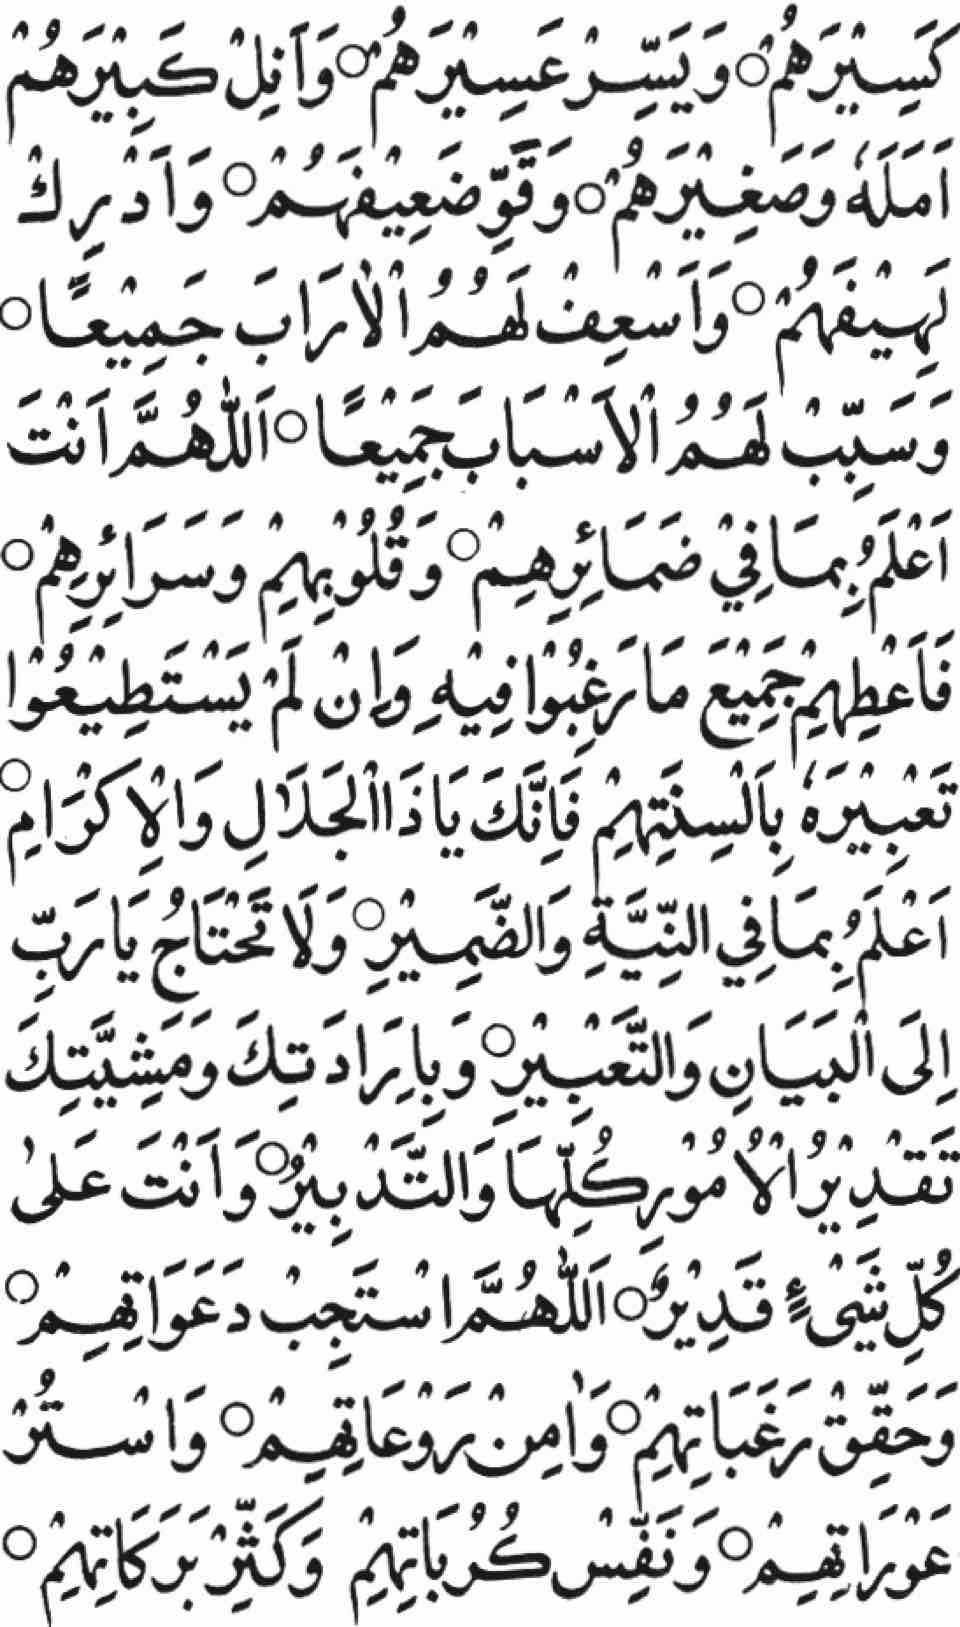 كَسِيْرَهُمْ ○ وَيَسِّرْ عَسِيْرَهُمْ ○ وَاَنِلْ كَبِيْرَهُمْ
اَمَلَهٗ وَصَغِيْرَهُمْ ○ وَقَوِّ ضَعِيْفَهُمْ ○ وَاَدْرِكْ
لَهِيْفَهُمْ ○ وَاَسْعِفْ لَهُمُ الْاٰرَابَ جَمِيْعًا ○
وَسَبِّبْ لَهُمُ الْاَسْبَابَ جَمِيْعًا ○ اَللّٰهُمَّ اَنْتَ
اَعْلَمُ بِمَا فِيْ ضَمَائِرِهِمْ ○ وَقُلُوْبِهِمْ وَسَرَائِرِهِمْ ○
فَاَعْطِهِمْ جَمِيْعَ مَا رَغِبُوْا فِيْهِ وَاِنْ لَمْ يَسْتَطِيْعُوْا
تَعْبِيْرَهٗ بِاَلْسِنَتِهِمْ فَاِنَّكَ يَا ذَاالْجَلَالِ وَالْاِكْرَامِ ○
اَعْلَمُ بِمَا فِي النِّيَّةِ وَالضَّمِيْرِ ○ وَلَا تَحْتَاجُ يَا رَبِّ
اِلَى الْبَيَانِ وَالتَّعْبِيْرِ ○ وَبِاِرَادَتِكَ وَمَشِيَّتِكَ
تَقْدِيْرُ الْاُمُوْرِ كُلِّهَا وَالتَّدْبِيْرُ ○ وَاَنْتَ عَلٰى
كُلِّ شَيْءٍ قَدِيْرٌ ○ اَللّٰهُمَّ اسْتَجِبْ دَعَوَاتِهِمْ ○
وَحَقِّقْ رَغَبَاتِهِمْ ○ وَاٰمِنْ رَوْعَاتِهِمْ ○ وَاسْتُرْ
عَوْرَاتِهِمْ ○ وَنَفِّسْ كُرُبَاتِهِمْ وَكَثِّرْ بَرَكَاتِهِمْ ○